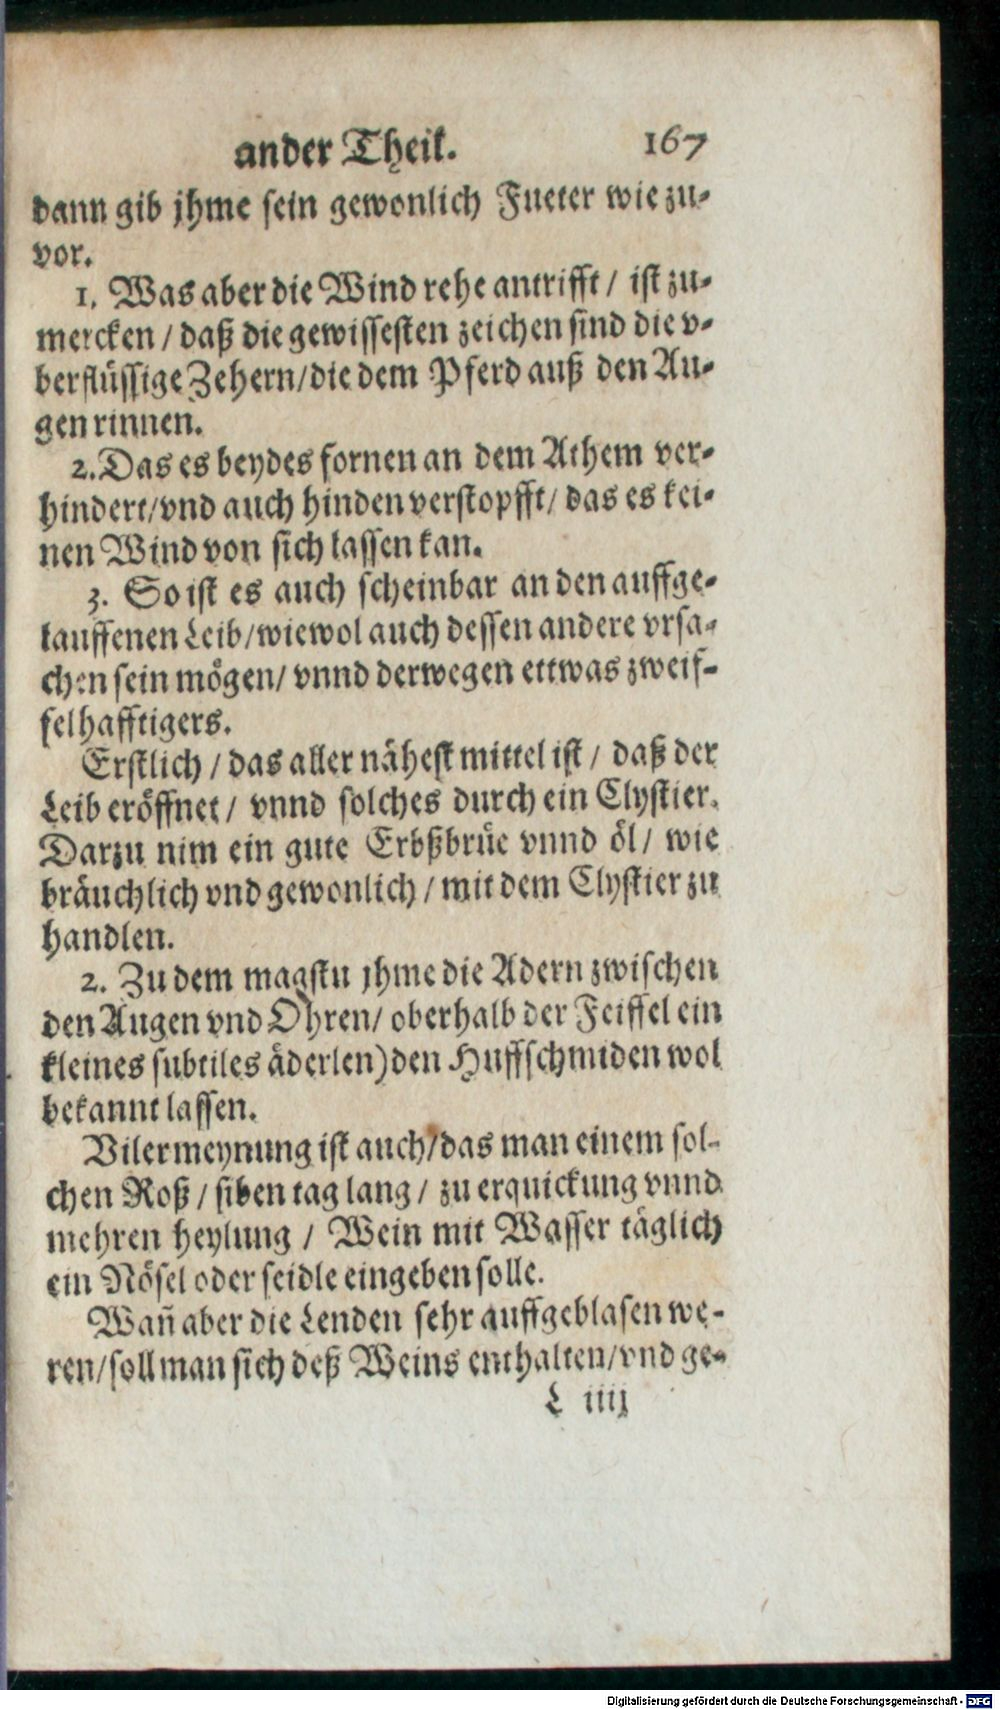 ander Theil. 167
dann gib jhme sein gewonlich Fueter wie zu-
vor.
1. Was aber die Wind rehe antrifft / ist zu-
mercken / daß die gewissesten zeichen sind die v-
berflüssige Zehern/die dem Pferd auß den Au-
gen rinnen.
2. Das es beydes fornen an dem Athem ver-
hindert/vnd auch hinden verstopfft/ das es kei-
nen Wind von sich lassen kan.
3. So ist es auch scheinbar an den auffge-
lauffenen Leib/wiewol auch dessen andere vrsa-
chen sein mögen/ vnnd derwegen ettwas zweif-
felhafftigers.
Erstlich / das aller nähest mittel ist / daß der
Leib eröffnet / vnnd solches durch ein Clystier.
Darzu nim ein gute Erbßbrüe vnnd öl / wie
bräuchlich vnd gewonlich / mit dem Clystier zu
handlen.
2. Zu dem magstu jhme die Adern zwischen
den Augen vnd Ohren/ oberhalb der Feiffel ein
kleines subtiles äderlen) den Huffschmiden wol
bekannt lassen.
Viler meynung ist auch/das man einem sol-
chen Roß / siben tag lang / zu erquickung vnnd
mehren heylung / Wein mit Wasser täglich
ein Nösel oder seidle eingeben solle.
Wañ aber die Lenden sehr auffgeblasen we-
ren/soll man sich deß Weins enthalten/vnd ge-
L iiij
Digitalisierung gefördert durch die Deutsche Forschungsgemeinschaft - DFG